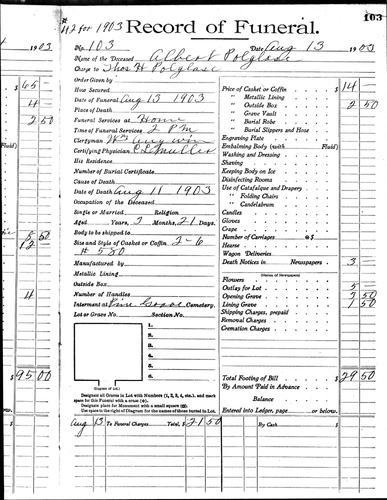 #
42 for 1903 Record of Funeral. 103
1903 No. 103 Date Aug 13 1903
Name of the Deceased Albert Polglase
Charge to Thos H Polglase
Order Given by
How Secured
Date of Funeral Aug 13 1903
Place of Death
Funeral Services at Home
Time of Funeral Services 2 PM
Clergyman Wm
Certifying Physician
His Residence
Number of Burial Certificate
Cause of Death
Date of Death Aug 11 1903
Occupation of the Deceased
Single or Married Religion
Aged Years, 2 Months, 21 Days.
Body to be shipped to
Size and Style of Casket or Coffin 2-6
# 580
Manufactured by
Metallic Lining
Outside Box
Number of Handles
Interment at Pine Grove Cemetery.
Lot or Grave No. Section No.
1.
2.
3.
4.
5.
6.
(Diagram of Lot.)
Designate all Graves in Lot with Numbers (1, 2, 3, 4, etc.), and mark
space for this Funeral with a cross (+).
Designate place for Monument with a small square (□).
Use space to right of Diagram for the names of those buried in Lot.
Aug 13 To Funeral Charges Total, $ 21 50
Price of Casket or Coffin $ 14 —
" Metallic Lining
" Outside Box 2 50
" Grave Vault
" Burial Robe
" Burial Slippers and Hose
Engraving Plate
Embalming Body (with Fluid)
Washing and Dressing
Shaving
Keeping Body on Ice
Disinfecting Rooms
Use of Catafalque and Drapery
" Folding Chairs
" Candelabrum
Candles
Gloves
Crape
Number of Carriages @ $
Hearse
Wagon Deliveries
Death Notices in Newspapers 3 —
(Names of Newspapers)
Flowers
Outlay for Lot 5
Opening Grave
Lining Grave
Shipping Charges, prepaid
Removal Charges
Cremation Charges
Total Footing of Bill $ 29 50
By Amount Paid in Advance
Balance
Entered into Ledger, page or below.
By Cash $
$ 65
4
2 50
Fluid)
5 50
12
4
$ 95 00